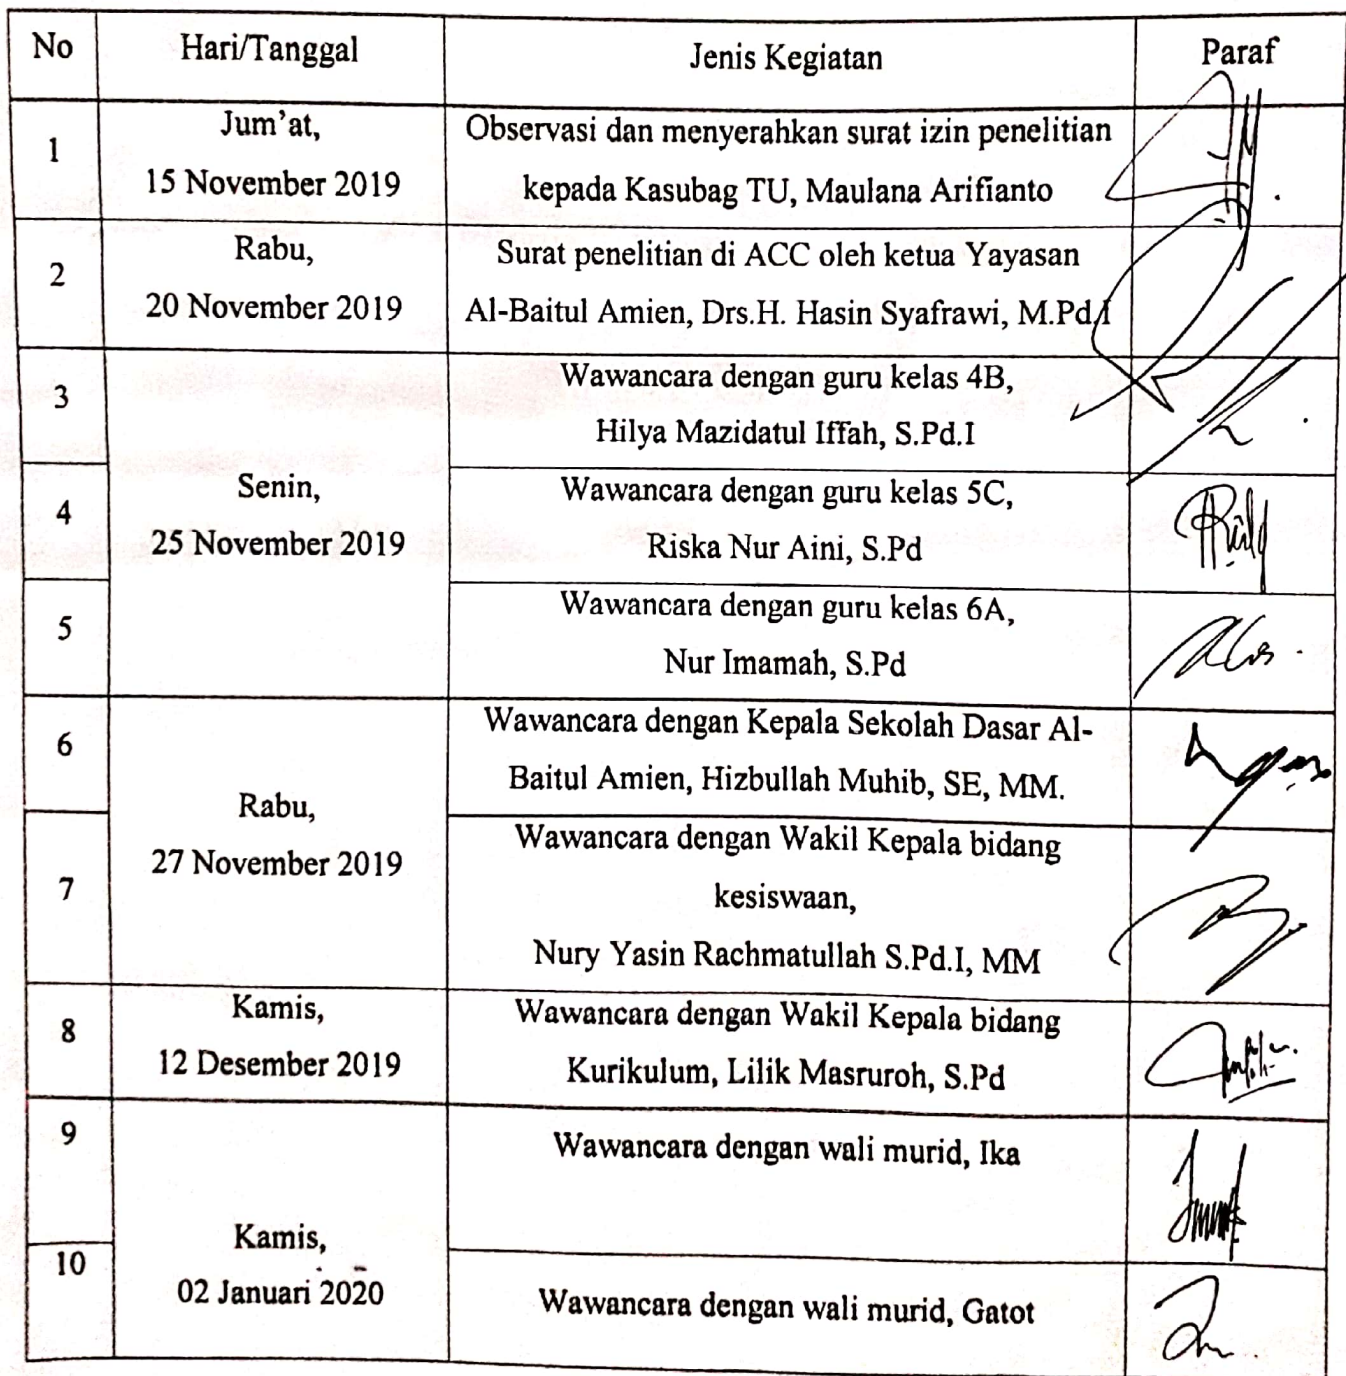 No Hari/Tanggal Jenis Kegiatan Paraf
1
Jum'at,
15 November 2019
Observasi dan menyerahkan surat izin penelitian
kepada Kasubag TU, Maulana Arifianto
2
Rabu,
20 November 2019
Surat penelitian di ACC oleh ketua Yayasan
Al-Baitul Amien, Drs.H. Hasin Syafrawi, M.Pd.I
3
Wawancara dengan guru kelas 4B,
Hilya Mazidatul Iffah, S.Pd.I
4
Senin,
25 November 2019
Wawancara dengan guru kelas 5C,
Riska Nur Aini, S.Pd
5
Wawancara dengan guru kelas 6A,
Nur Imamah, S.Pd
6
Wawancara dengan Kepala Sekolah Dasar Al-
Baitul Amien, Hizbullah Muhib, SE, MM.
Rabu,
27 November 2019
7
Wawancara dengan Wakil Kepala bidang
kesiswaan,
Nury Yasin Rachmatullah S.Pd.I, MM
8
Kamis,
12 Desember 2019
Wawancara dengan Wakil Kepala bidang
Kurikulum, Lilik Masruroh, S.Pd
9
Wawancara dengan wali murid, Ika
Kamis,
02 Januari 2020
10
Wawancara dengan wali murid, Gatot